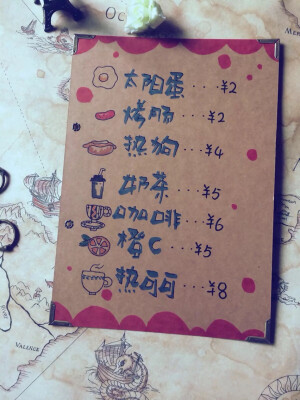 OC
太阳蛋 ···¥2
烤肠 ···¥2
热狗 ···¥4
奶茶 ···¥5
咖啡 ···¥6
橙C ···¥5
热可可 ···¥8
VALENCE